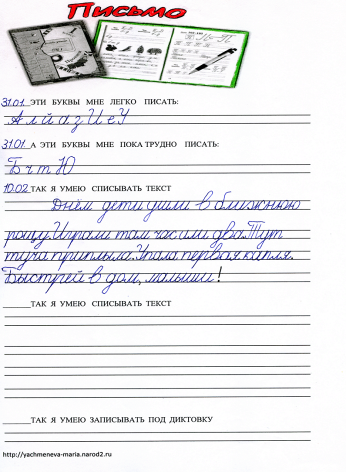 Письмо
31.01. ЭТИ БУКВЫ МНЕ ЛЕГКО ПИСАТЬ:
А л й а г И е У
31.01 А ЭТИ БУКВЫ МНЕ ПОКА ТРУДНО ПИСАТЬ:
Б ч т Ю
10.02 ТАК Я УМЕЮ СПИСЫВАТЬ ТЕКСТ
Днём дети ушли в ближнюю
рощу. Играли там час или два. Тут
туча приплыла. Упала первая капля.
Быстрей в дом, малыши!
ТАК Я УМЕЮ СПИСЫВАТЬ ТЕКСТ
ТАК Я УМЕЮ ЗАПИСЫВАТЬ ПОД ДИКТОВКУ
http://yachmeneva-maria.narod2.ru